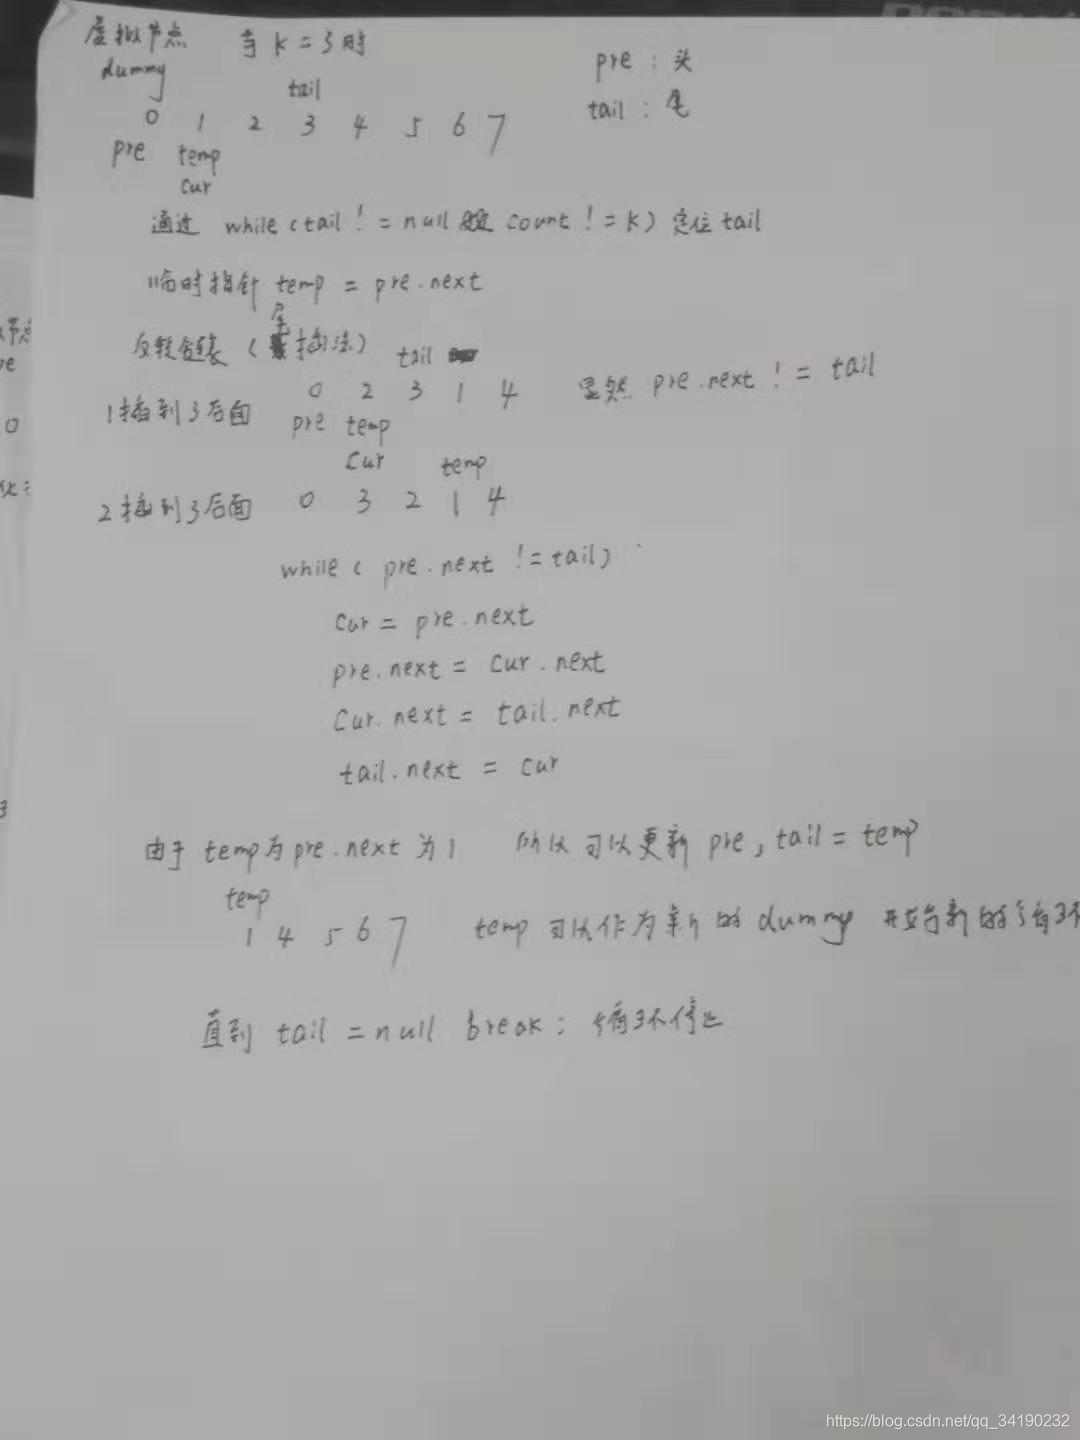 虚拟节点 当 k = 3 时
dummy
pre : 头
tail
tail : 尾
0 1 2 3 4 5 6 7
pre temp
cur
通过 while (tail != null count != k) 定位 tail
临时指针 temp = pre.next
尾
反转链表 ( 插法) tail
0 2 3 1 4 显然 pre.next != tail
1插到3后面 pre temp
cur temp
2插到3后面 0 3 2 1 4
while ( pre.next != tail)
cur = pre.next
pre.next = cur.next
cur.next = tail.next
tail.next = cur
由于 temp为 pre.next 为1 所以可以更新 pre, tail = temp
temp
1 4 5 6 7 temp 可以作为新的 dummy 开始新的
直到 tail = null break; 停止
https://blog.csdn.net/qq_34190232